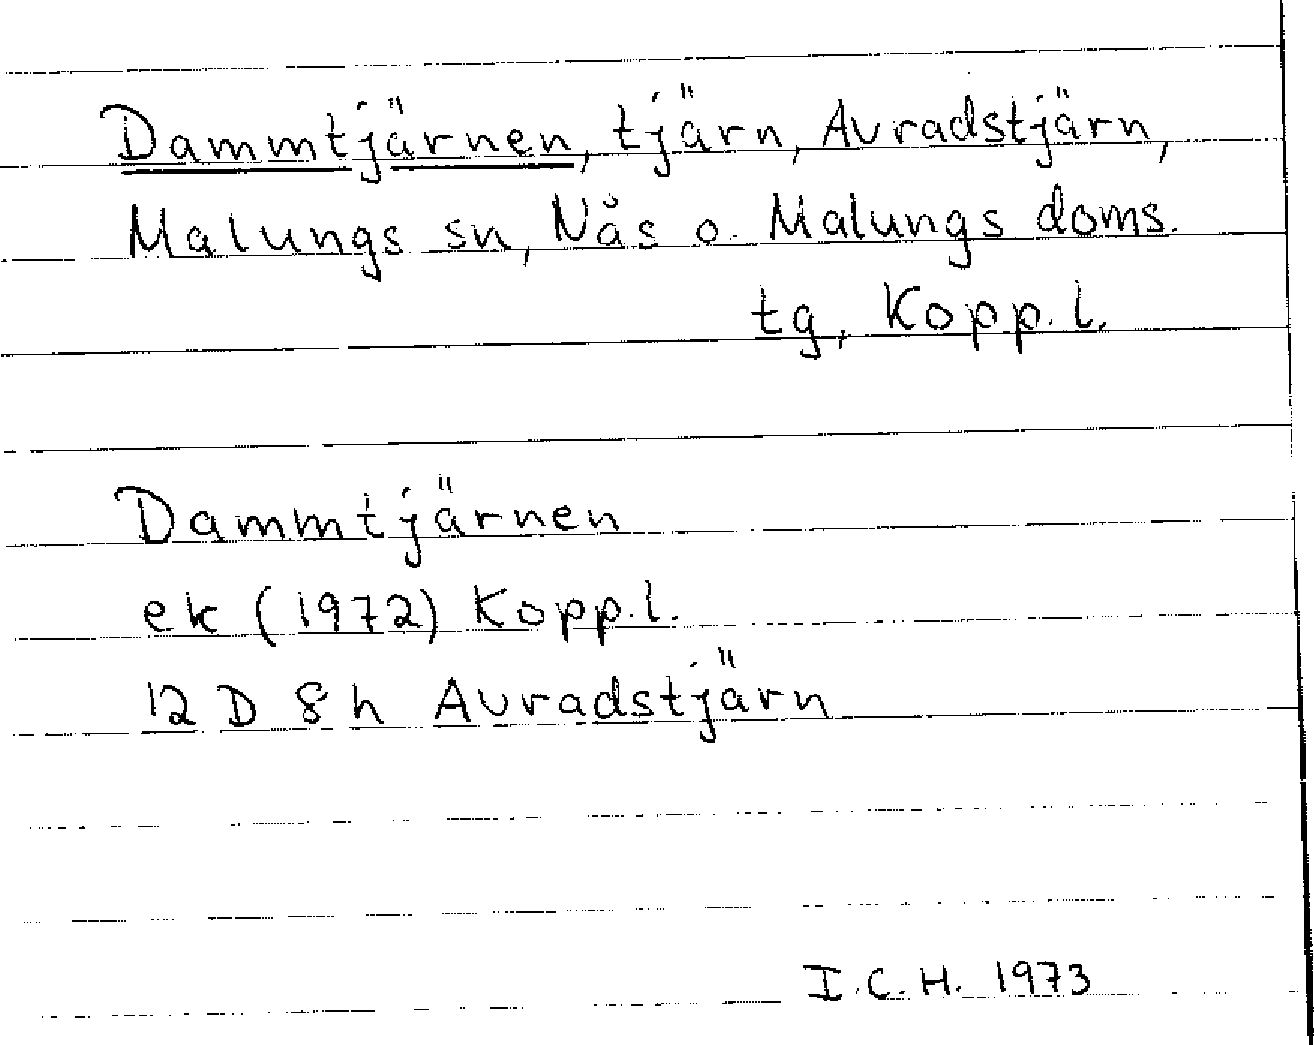 Dammtjärnen, tjärn, Avradstjärn,
Malungs sn, Nås o. Malungs doms.
tg, Kopp. l.
Dammtjärnen
ek (1972) Kopp.l.
12 D 8 h Avradstjärn
I.C.H. 1973